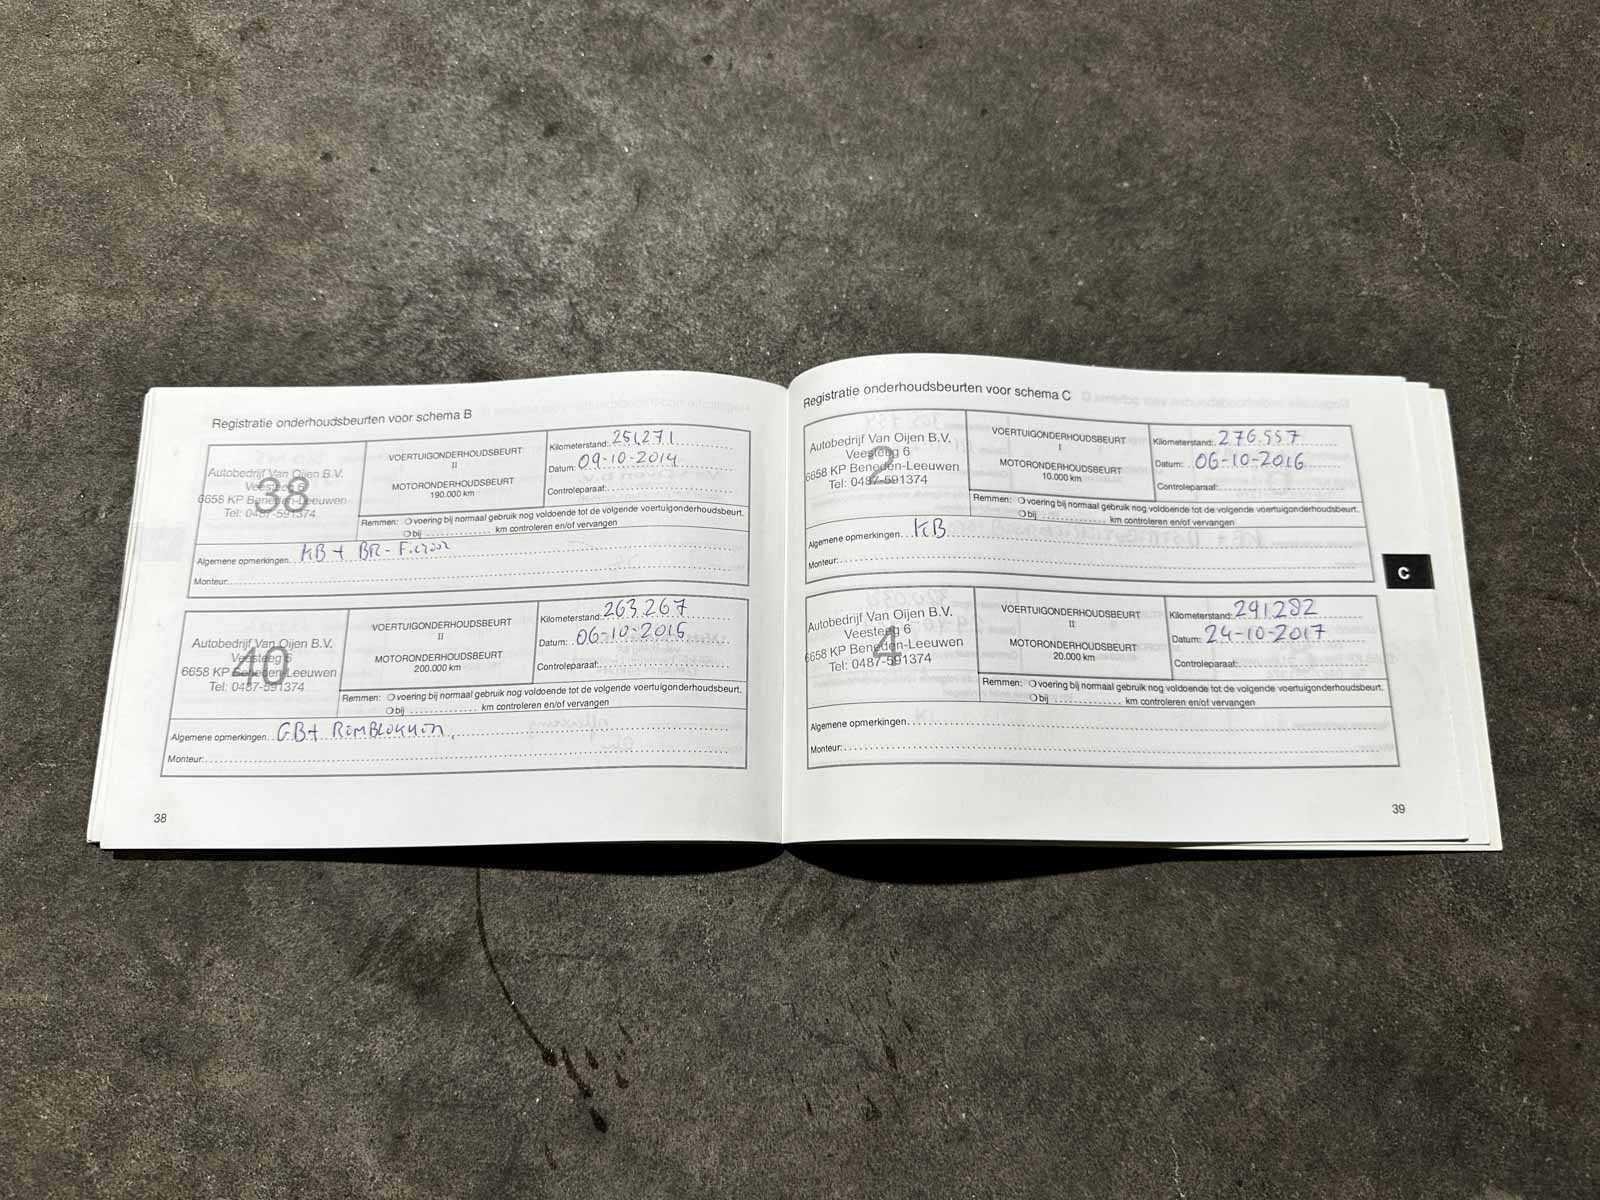 Registratie onderhoudsbeurten voor schema B
Autobedrijf Van Oijen B.V.
Veesteeg 6
6658 KP Beneden-Leeuwen
Tel: 0487-591374
38
VOERTUIGONDERHOUDSBEURT
II
MOTORONDERHOUDSBEURT
190.000 km
Kilometerstand: 251,271
Datum: 09-10-2014
Controleparaaf:
Remmen: voering bij normaal gebruik nog voldoende tot de volgende voertuigonderhoudsbeurt.
bij km controleren en/of vervangen
Algemene opmerkingen. KB + BR-
Monteur:
Autobedrijf Van Oijen B.V.
Veesteeg 6
6658 KP Beneden-Leeuwen
Tel: 0487-591374
40
VOERTUIGONDERHOUDSBEURT
II
MOTORONDERHOUDSBEURT
200.000 km
Kilometerstand: 263.267
Datum: 06-10-2015
Controleparaaf:
Remmen: voering bij normaal gebruik nog voldoende tot de volgende voertuigonderhoudsbeurt.
bij km controleren en/of vervangen
Algemene opmerkingen. GB+ REMBLOKKEN
Monteur:
38
Registratie onderhoudsbeurten voor schema C
Autobedrijf Van Oijen B.V.
Veesteeg 6
6658 KP Beneden-Leeuwen
Tel: 0487-591374
2
VOERTUIGONDERHOUDSBEURT
I
MOTORONDERHOUDSBEURT
10.000 km
Kilometerstand: 276.557
Datum: 06-10-2016
Controleparaaf:
Remmen: voering bij normaal gebruik nog voldoende tot de volgende voertuigonderhoudsbeurt.
bij km controleren en/of vervangen
Algemene opmerkingen. KB
Monteur:
C
Autobedrijf Van Oijen B.V.
Veesteeg 6
6658 KP Beneden-Leeuwen
Tel: 0487-591374
4
VOERTUIGONDERHOUDSBEURT
II
MOTORONDERHOUDSBEURT
20.000 km
Kilometerstand: 291.282
Datum: 24-10-2017
Controleparaaf:
Remmen: voering bij normaal gebruik nog voldoende tot de volgende voertuigonderhoudsbeurt.
bij km controleren en/of vervangen
Algemene opmerkingen.
Monteur:
39